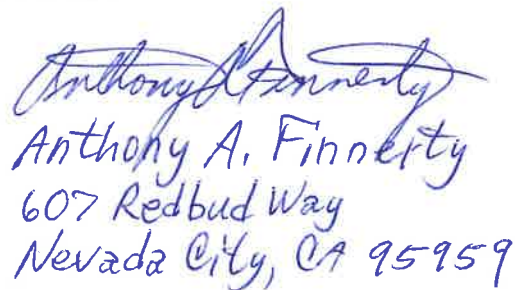 Anthony A Finnerty
Anthony A. Finnerty
607 Redbud Way
Nevada City, CA 95959